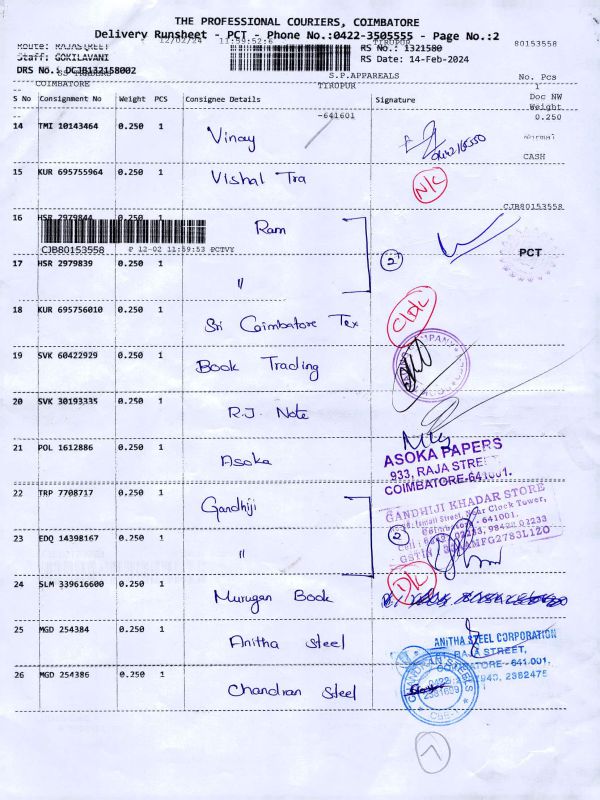 THE PROFESSIONAL COURIERS, COIMBATORE
Delivery Runsheet - PCT - Phone No.:0422-3505555 - Page No.:2
Route: RAJASTREET 12/02/24 11:59:52:6 TIRUPUR RS No.: 1321580 80153558
Staff: GOKILAVANI RS Date: 14-Feb-2024
DRS No.: DCJB132158002 S.P.APPAREALS No. Pcs
COIMBATORE TIRUPUR 1
S No Consignment No Weight PCS Consignee Details Signature Doc NW
Weight
-641601 0.250
14 TMI 10143464 0.250 1 Vinay Normal
CASH
15 KUR 695755964 0.250 1 Vishal Tra N/C
CJB80153558
16 HSR 2979844 0.250 1 Ram
CJB80153558 P 12-02 11:59:53 PCTVY 2 PCT
17 HSR 2979839 0.250 1 "
18 KUR 695756010 0.250 1 Sri Coimbatore Tex
19 SVK 60422929 0.250 1 Book Trading
20 SVK 30193335 0.250 1 R.J. Note
21 POL 1612886 0.250 1 Asoka
ASOKA PAPERS
933, RAJA STREET
COIMBATORE-641001.
22 TRP 7708717 0.250 1 Gandhiji
GANDHIJI KHADAR STORE
Ismail Street, Near Clock Tower,
Coimbatore - 641001.
23 EDQ 14398167 0.250 1 " 2
24 SLM 339616600 0.250 1 Murugan Book D/L
25 MGD 254384 0.250 1 Anitha Steel
ANITHA STEEL CORPORATION
RAJA STREET,
COIMBATORE - 641 001.
2382475
26 MGD 254386 0.250 1 Chandran Steel
CHANDRAN STEELS
0422